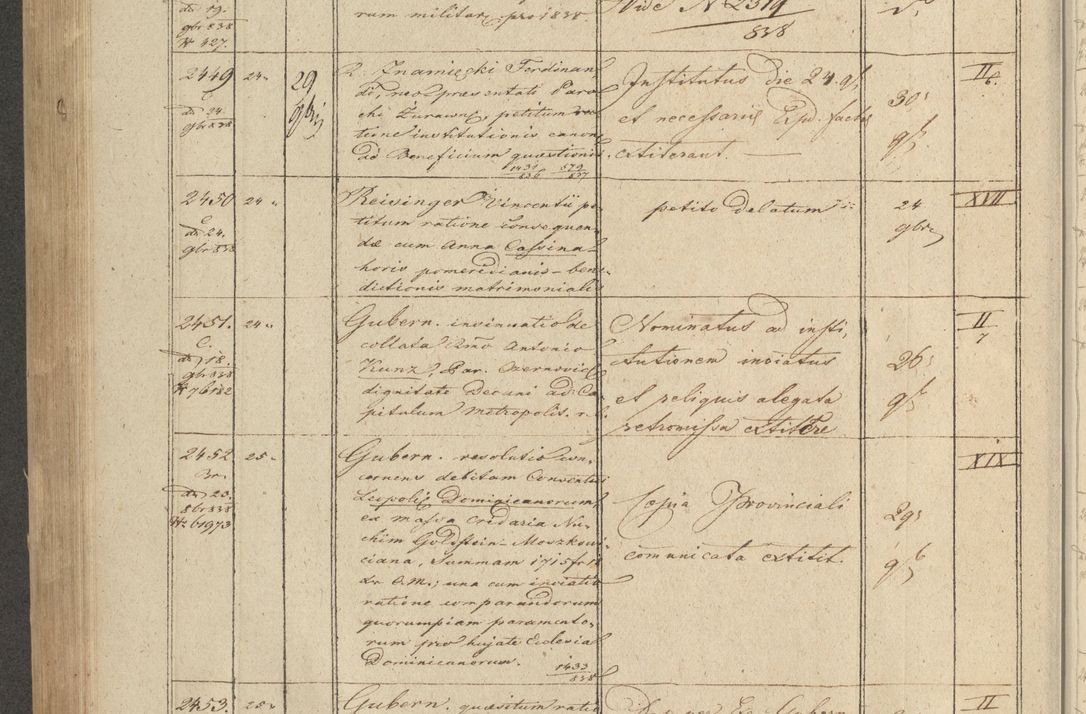 de 19.
gbr 838
Nr 327.
rum militar. pro 1838.
Vide N 2319
838
2449
C.
de 24.
gbr 838
24 "
29
gbris
R. Znamięcki Ferdinan-
di, repræsentati Paro-
chi Żurawn, petitum ra-
tione institutionis canon.
ad Beneficium quæstionis.
1431/836 579/837
Institutus die 24. gb
et necessariis Exped. factis
extiterant. —
30
gb
II
6.
2450
C
de 24.
gbr 838
24 "
Reisinger Vincentii pe-
titum ratione consequen-
dæ cum Anna Cassina
horis pomeridianis – bene-
dictionis matrimonialis
petito delatum
24
gbr
XVII
2451.
C.
de 18.
gbr 838
N 76182
24 "
Gubern. insinuatio de
collata Rmo Antonio
Kunz, Par. Czernovic.
dignitate Decani ad Ca-
pitulum Metropolit. r. l.
Nominatus ad insti-
tutionem inviatus
et reliquis alegata
retromissa extitere
26
gb
II
7
2452
Br.
de 23.
8br 838
Nr 61973
25 "
Gubern. resolutio con-
cernens debitam Conventui
Leopoli Dominicanorum,
ex massa cridaria Nu-
chim Goldstein – Moszkowi-
ciana, Summam 1715 fr 14
dr C.M.; una cum inviatio
ratione comparandorum
quorumpiam paramento-
rum pro hujate Ecclesia
Dominicanorum.
1433/838
Copia Provinciali
communicata extitit.
29
gb
XIX
2453.
25 "
Gubern. quæsitum ratio
II